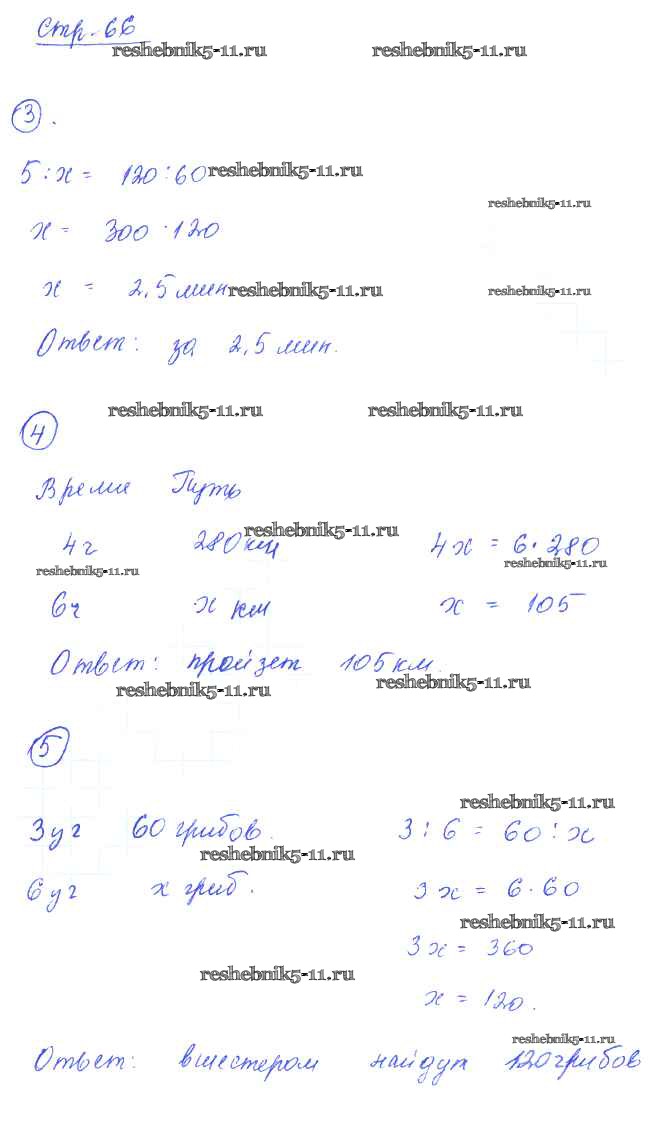 Стр. 66
reshebnik5-11.ru reshebnik5-11.ru
3.
5 : x = 120 : 60 reshebnik5-11.ru
reshebnik5-11.ru
x = 300 · 120
x = 2,5 мин reshebnik5-11.ru reshebnik5-11.ru
Ответ: за 2,5 мин.
reshebnik5-11.ru reshebnik5-11.ru
4
Время Путь
reshebnik5-11.ru
4ч 280 км 4x = 6 · 280
reshebnik5-11.ru reshebnik5-11.ru
6ч x км x = 105
Ответ: пройзет 105 км.
reshebnik5-11.ru reshebnik5-11.ru
5
reshebnik5-11.ru
3 уч 60 грибов. 3 : 6 = 60 : x
reshebnik5-11.ru
6 уч x гриб. 3x = 6 · 60
reshebnik5-11.ru
3x = 360
reshebnik5-11.ru
x = 120.
reshebnik5-11.ru
Ответ: вшестером найдут 120 грибов